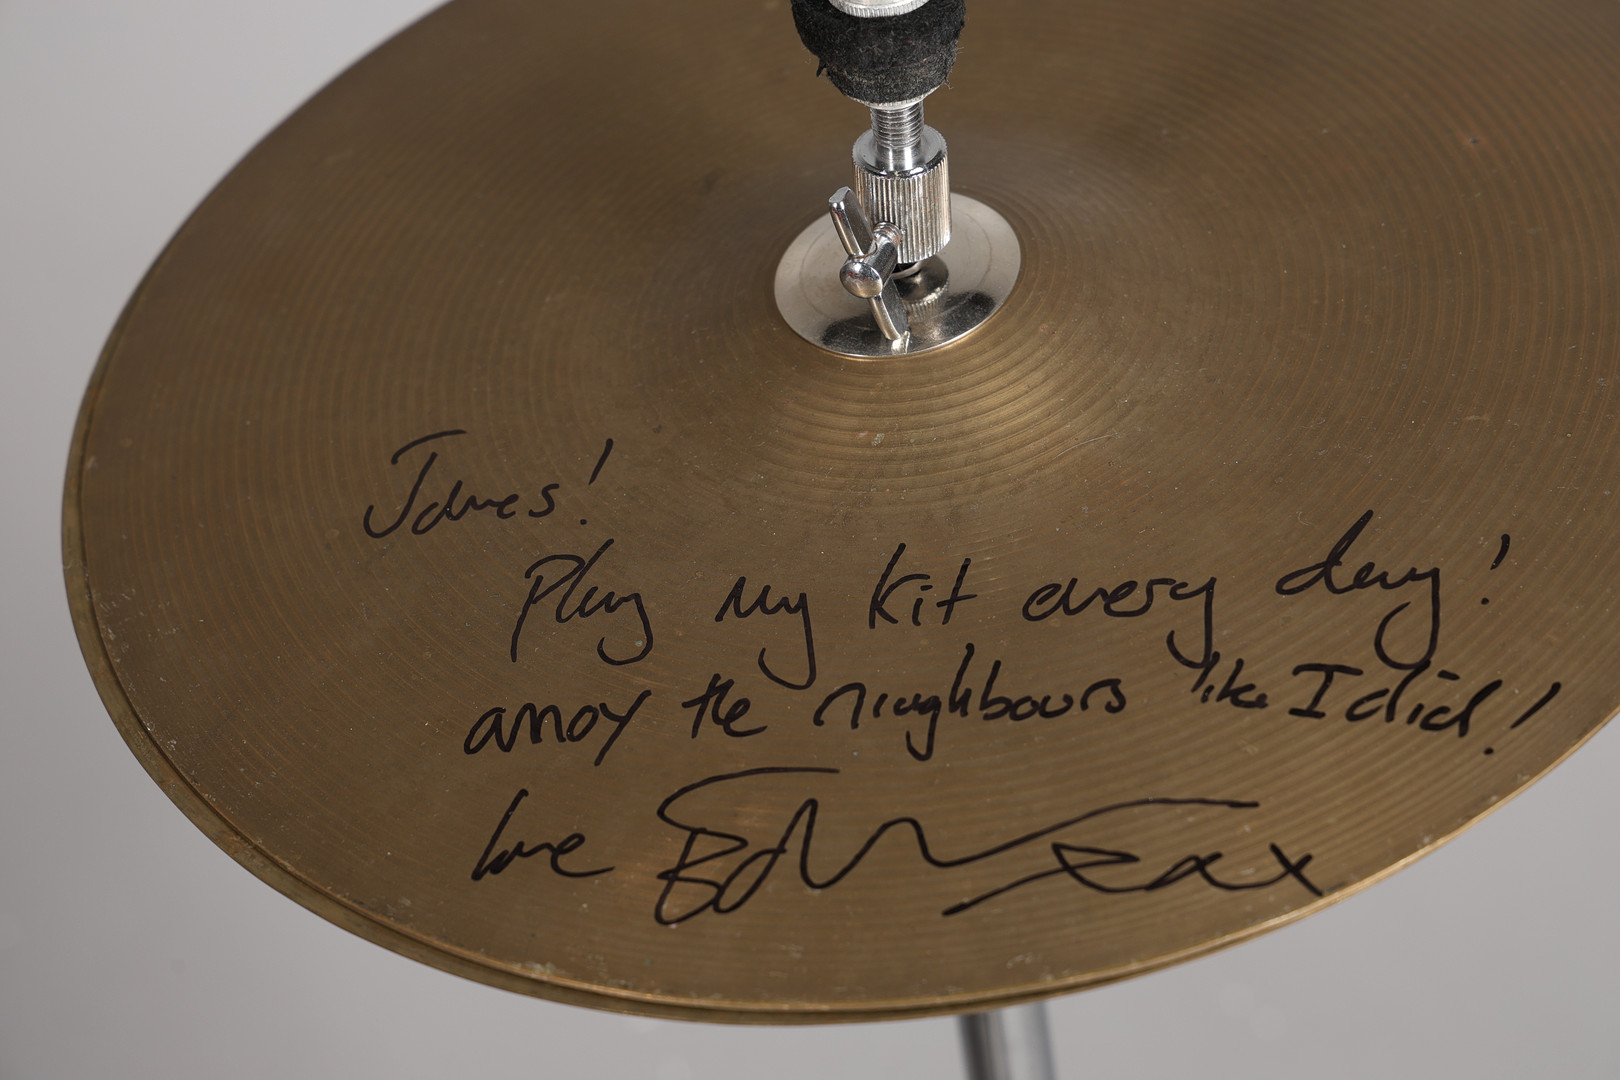 James!
Play my kit every day!
annoy the neighbours like I did!
love Ed